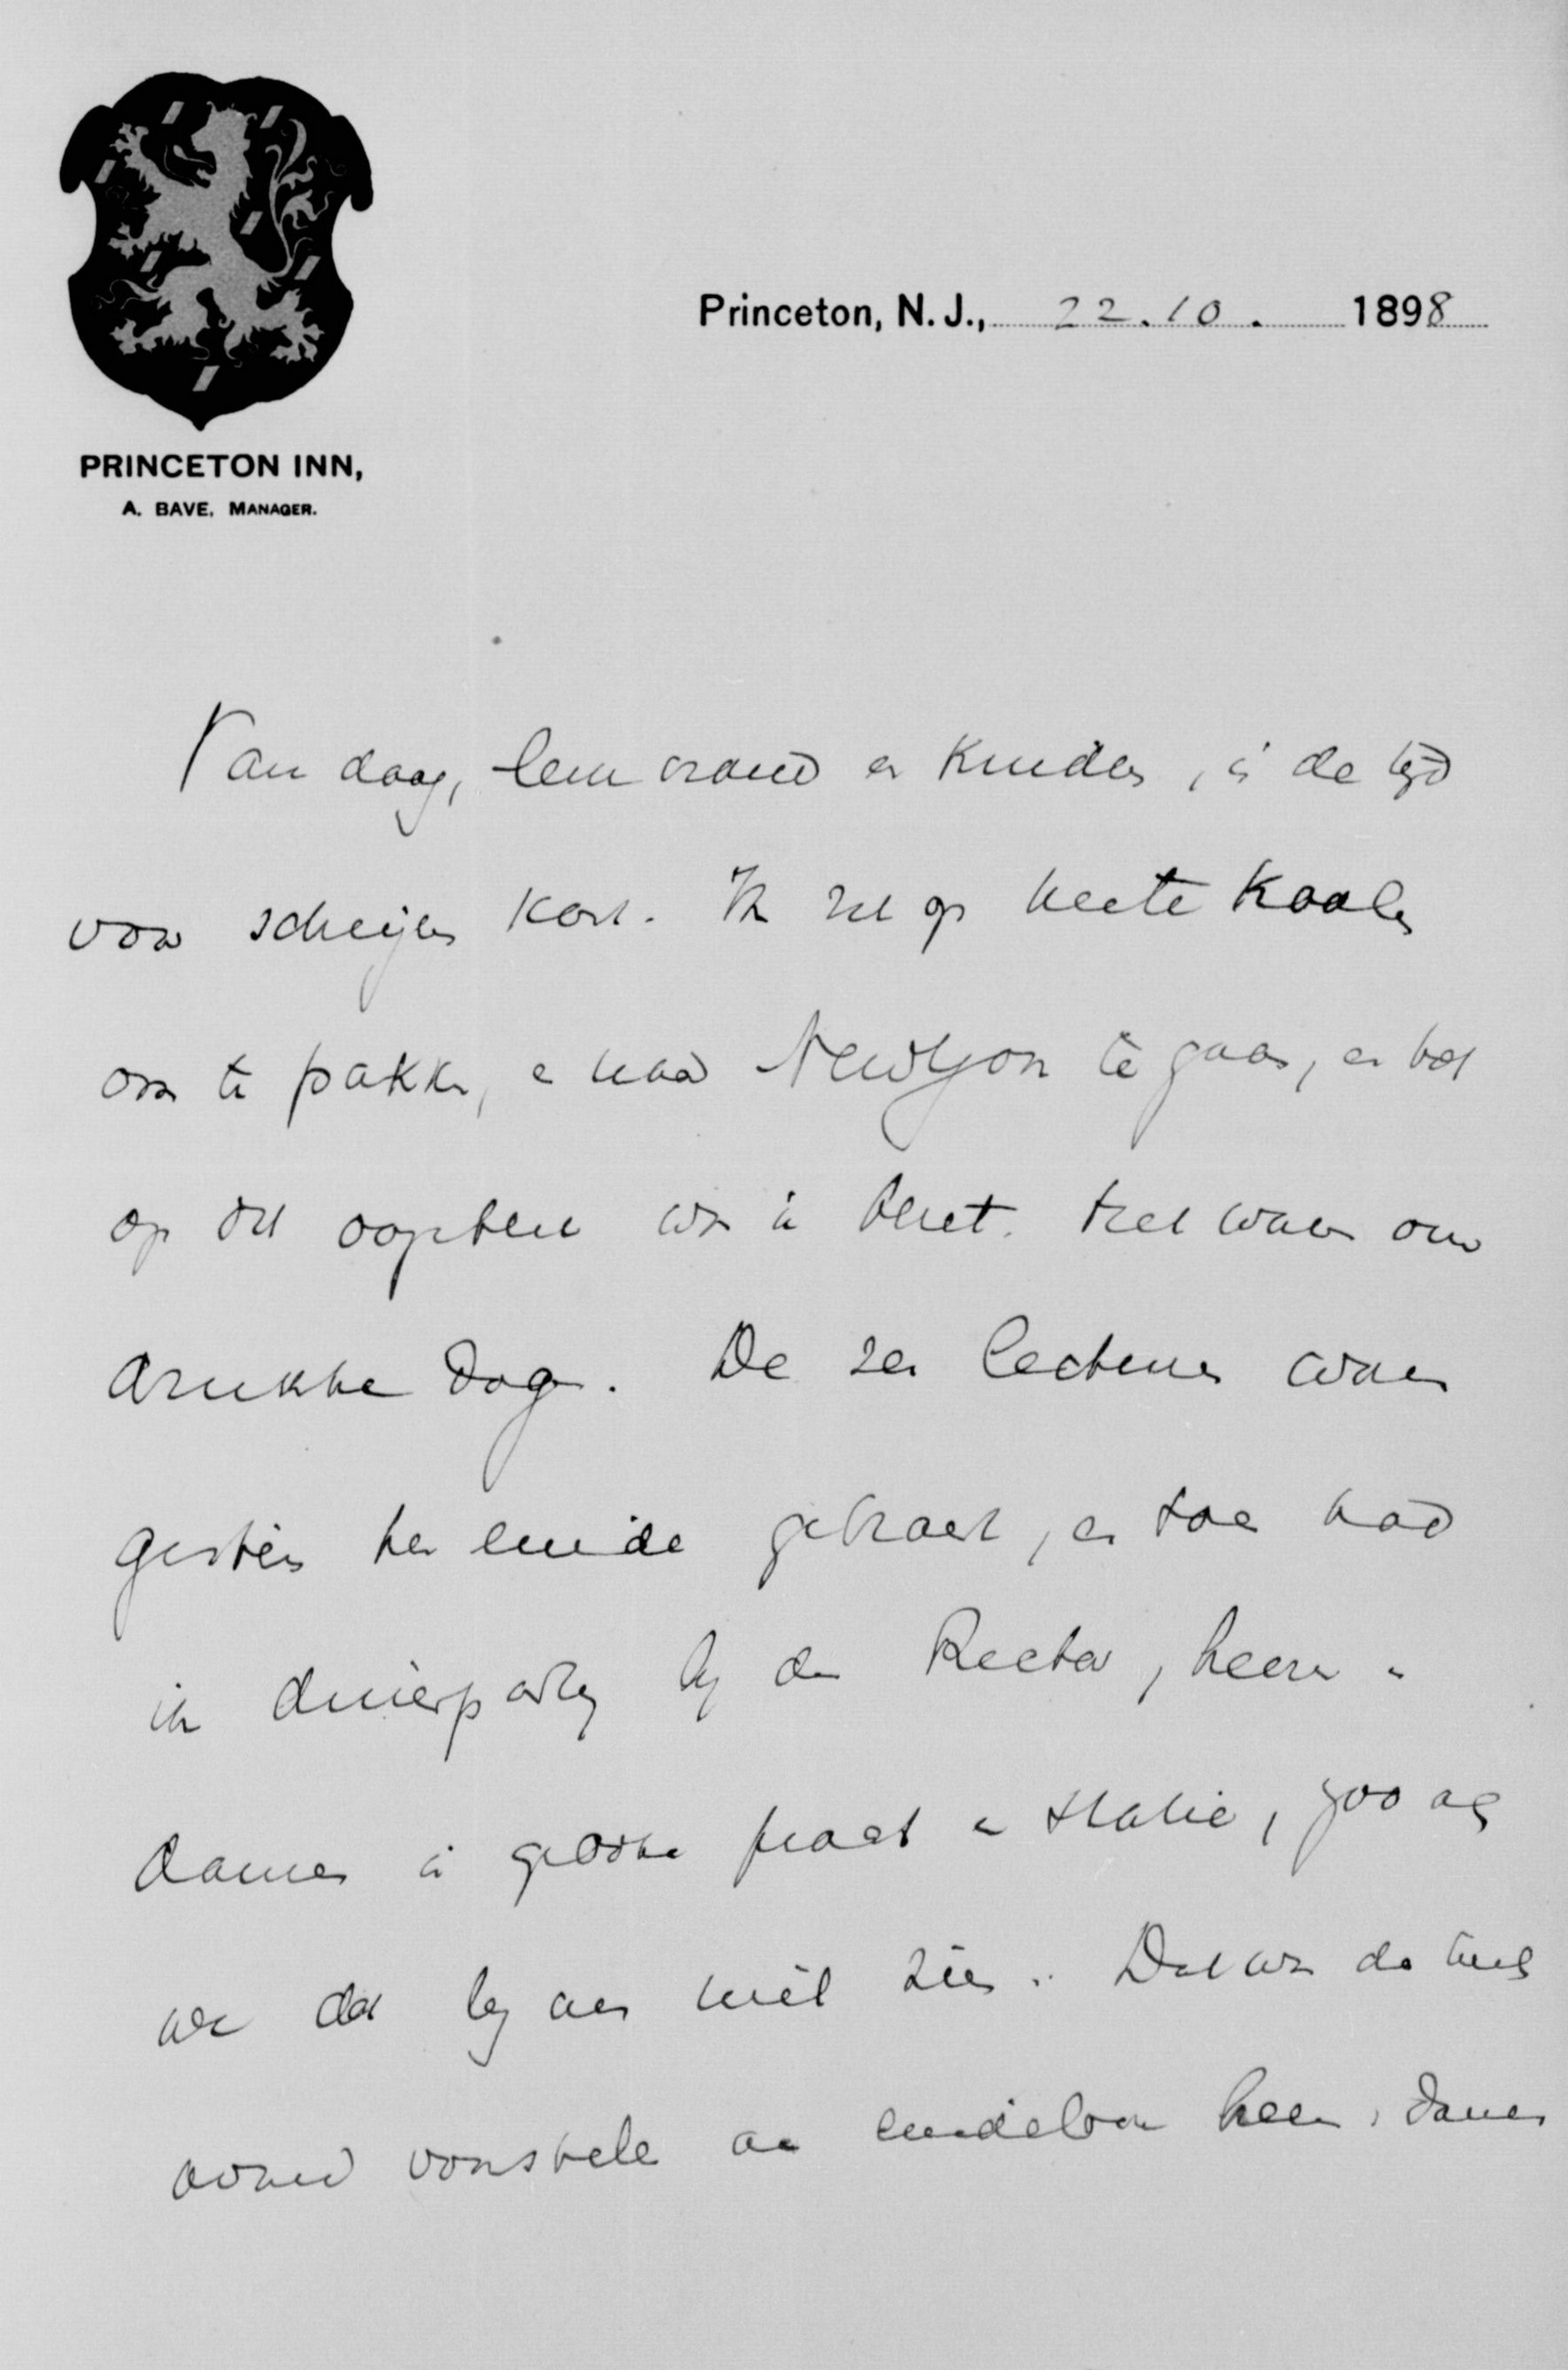 Princeton, N. J., 22.10. 1898
PRINCETON INN,
A. BAVE, MANAGER.
Van daag, lieve vrouw en kinders, is de tijd
voor schrijven kort. Ik zit op heete koolen
om te pakken, en naar NewYork te gaan, en tot
op dit oogenblik was ik bezet. Het waren
drukke dagen. De zes lectures waren
gisteren ten einde gebracht, en toen had
ik dinerparty bij den Rector, heeren en
dames in groote pracht en statie, zooals
we dat bij ons niet zien. Dat was de heele
avond voorstellen aan eindelooze heeren, dames